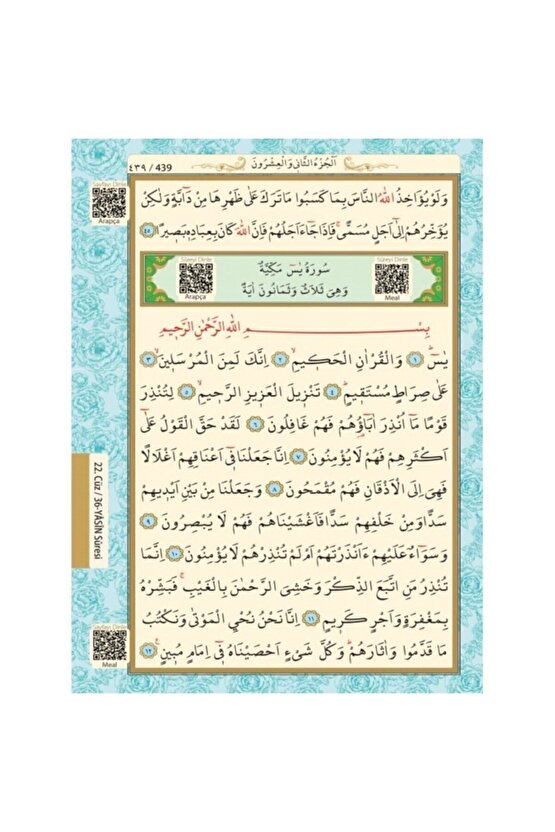 اَلْجُزْءُ الثَّانٖى وَالْعِشْرُونَ
٤٣٩ / 439
Sayfayı Dinle
Arapça
وَلَوْ يُؤَاخِذُ اللّٰهُ النَّاسَ بِمَا كَسَبُوا مَا تَرَكَ عَلٰى ظَهْرِهَا مِنْ دَٓابَّةٍ وَلٰكِنْ
يُؤَخِّرُهُمْ اِلٰٓى اَجَلٍ مُسَمًّىۚ فَاِذَا جَٓاءَ اَجَلُهُمْ فَاِنَّ اللّٰهَ كَانَ بِعِبَادِهٖ بَصٖيرًا ٤٥
Süreyi Dinle
Arapça
سُورَةُ يٰسٓ مَكِّيَّةٌ
وَهِىَ ثَلَاثٌ وَثَمَانُونَ اٰيَةً
Süreyi Dinle
Meal
بِسْمِ اللّٰهِ الرَّحْمٰنِ الرَّحٖيمِ
يٰسٓۚ ١ وَالْقُرْاٰنِ الْحَكٖيمِۙ ٢ اِنَّكَ لَمِنَ الْمُرْسَلٖينَۙ ٣
عَلٰى صِرَاطٍ مُسْتَقٖيمٍؕ ٤ تَنْزٖيلَ الْعَزٖيزِ الرَّحٖيمِۙ ٥ لِتُنْذِرَ
قَوْمًا مَٓا اُنْذِرَ اٰبَٓاؤُهُمْ فَهُمْ غَافِلُونَ ٦ لَقَدْ حَقَّ الْقَوْلُ عَلٰٓى
اَكْثَرِهِمْ فَهُمْ لَا يُؤْمِنُونَ ٧ اِنَّا جَعَلْنَا فٖٓى اَعْنَاقِهِمْ اَغْلَالًا
فَهِىَ اِلَى الْاَذْقَانِ فَهُمْ مُقْمَحُونَ ٨ وَجَعَلْنَا مِنْ بَيْنِ اَيْدٖيهِمْ
سَدًّا وَمِنْ خَلْفِهِمْ سَدًّا فَاَغْشَيْنَاهُمْ فَهُمْ لَا يُبْصِرُونَ ٩
وَسَوَٓاءٌ عَلَيْهِمْ ءَاَنْذَرْتَهُمْ اَمْ لَمْ تُنْذِرْهُمْ لَا يُؤْمِنُونَ ١٠ اِنَّمَا
تُنْذِرُ مَنِ اتَّبَعَ الذِّكْرَ وَخَشِىَ الرَّحْمٰنَ بِالْغَيْبِۚ فَبَشِّرْهُ
بِمَغْفِرَةٍ وَاَجْرٍ كَرٖيمٍ ١١ اِنَّا نَحْنُ نُحْيِ الْمَوْتٰى وَنَكْتُبُ
مَا قَدَّمُوا وَاٰثَارَهُمْؕ وَكُلَّ شَىْءٍ اَحْصَيْنَاهُ فٖٓى اِمَامٍ مُبٖينٍ ١٢
22. Cüz / 36-YÂSÎN Sûresi
Sayfayı Dinle
Meal